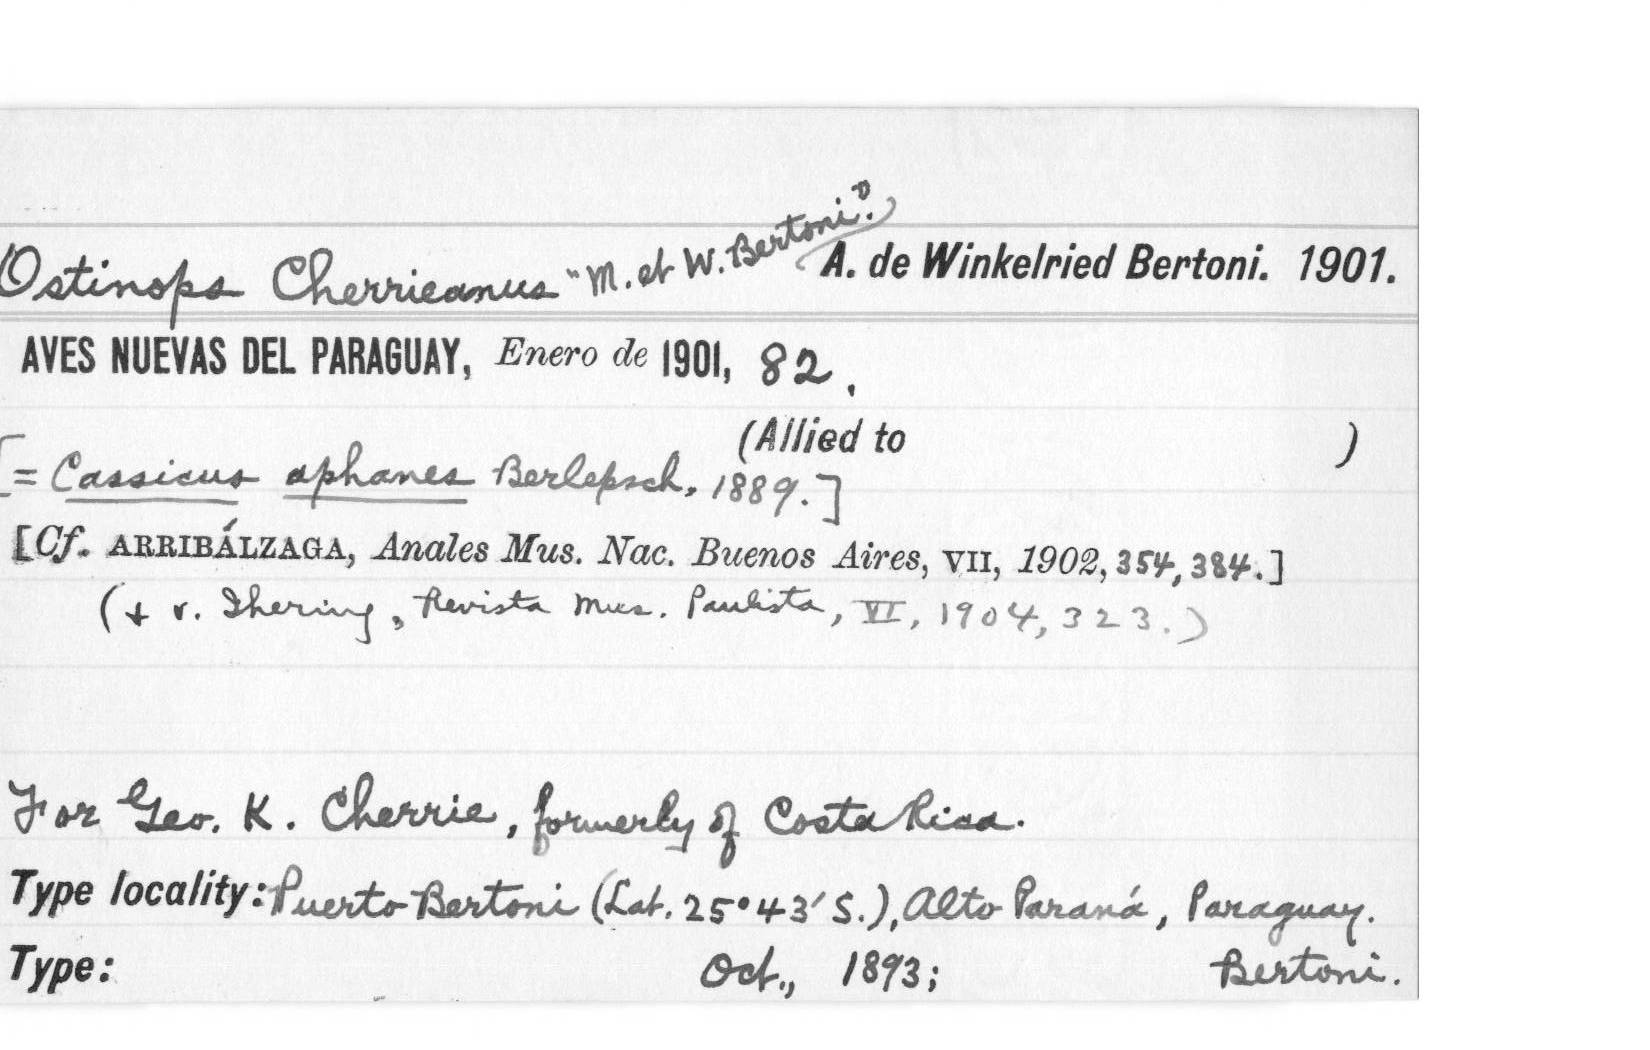 Ostinops Cherrieanus "M. et W. Bertoni." A. de Winkelried Bertoni. 1901.
AVES NUEVAS DEL PARAGUAY, Enero de 1901, 82.
(Allied to )
[= Cassicus aphanes Berlepsch, 1889.]
[Cf. ARRIBÁLZAGA, Anales Mus. Nac. Buenos Aires, VII, 1902, 354, 384.]
(+ v. Ihering, Revista Mus. Paulista, VI, 1904, 323.)
For Geo. K. Cherrie, formerly of Costa Rica.
Type locality: Puerto Bertoni (Lat. 25°43' S.), Alto Paraná, Paraguay.
Type: Oct., 1893; Bertoni.